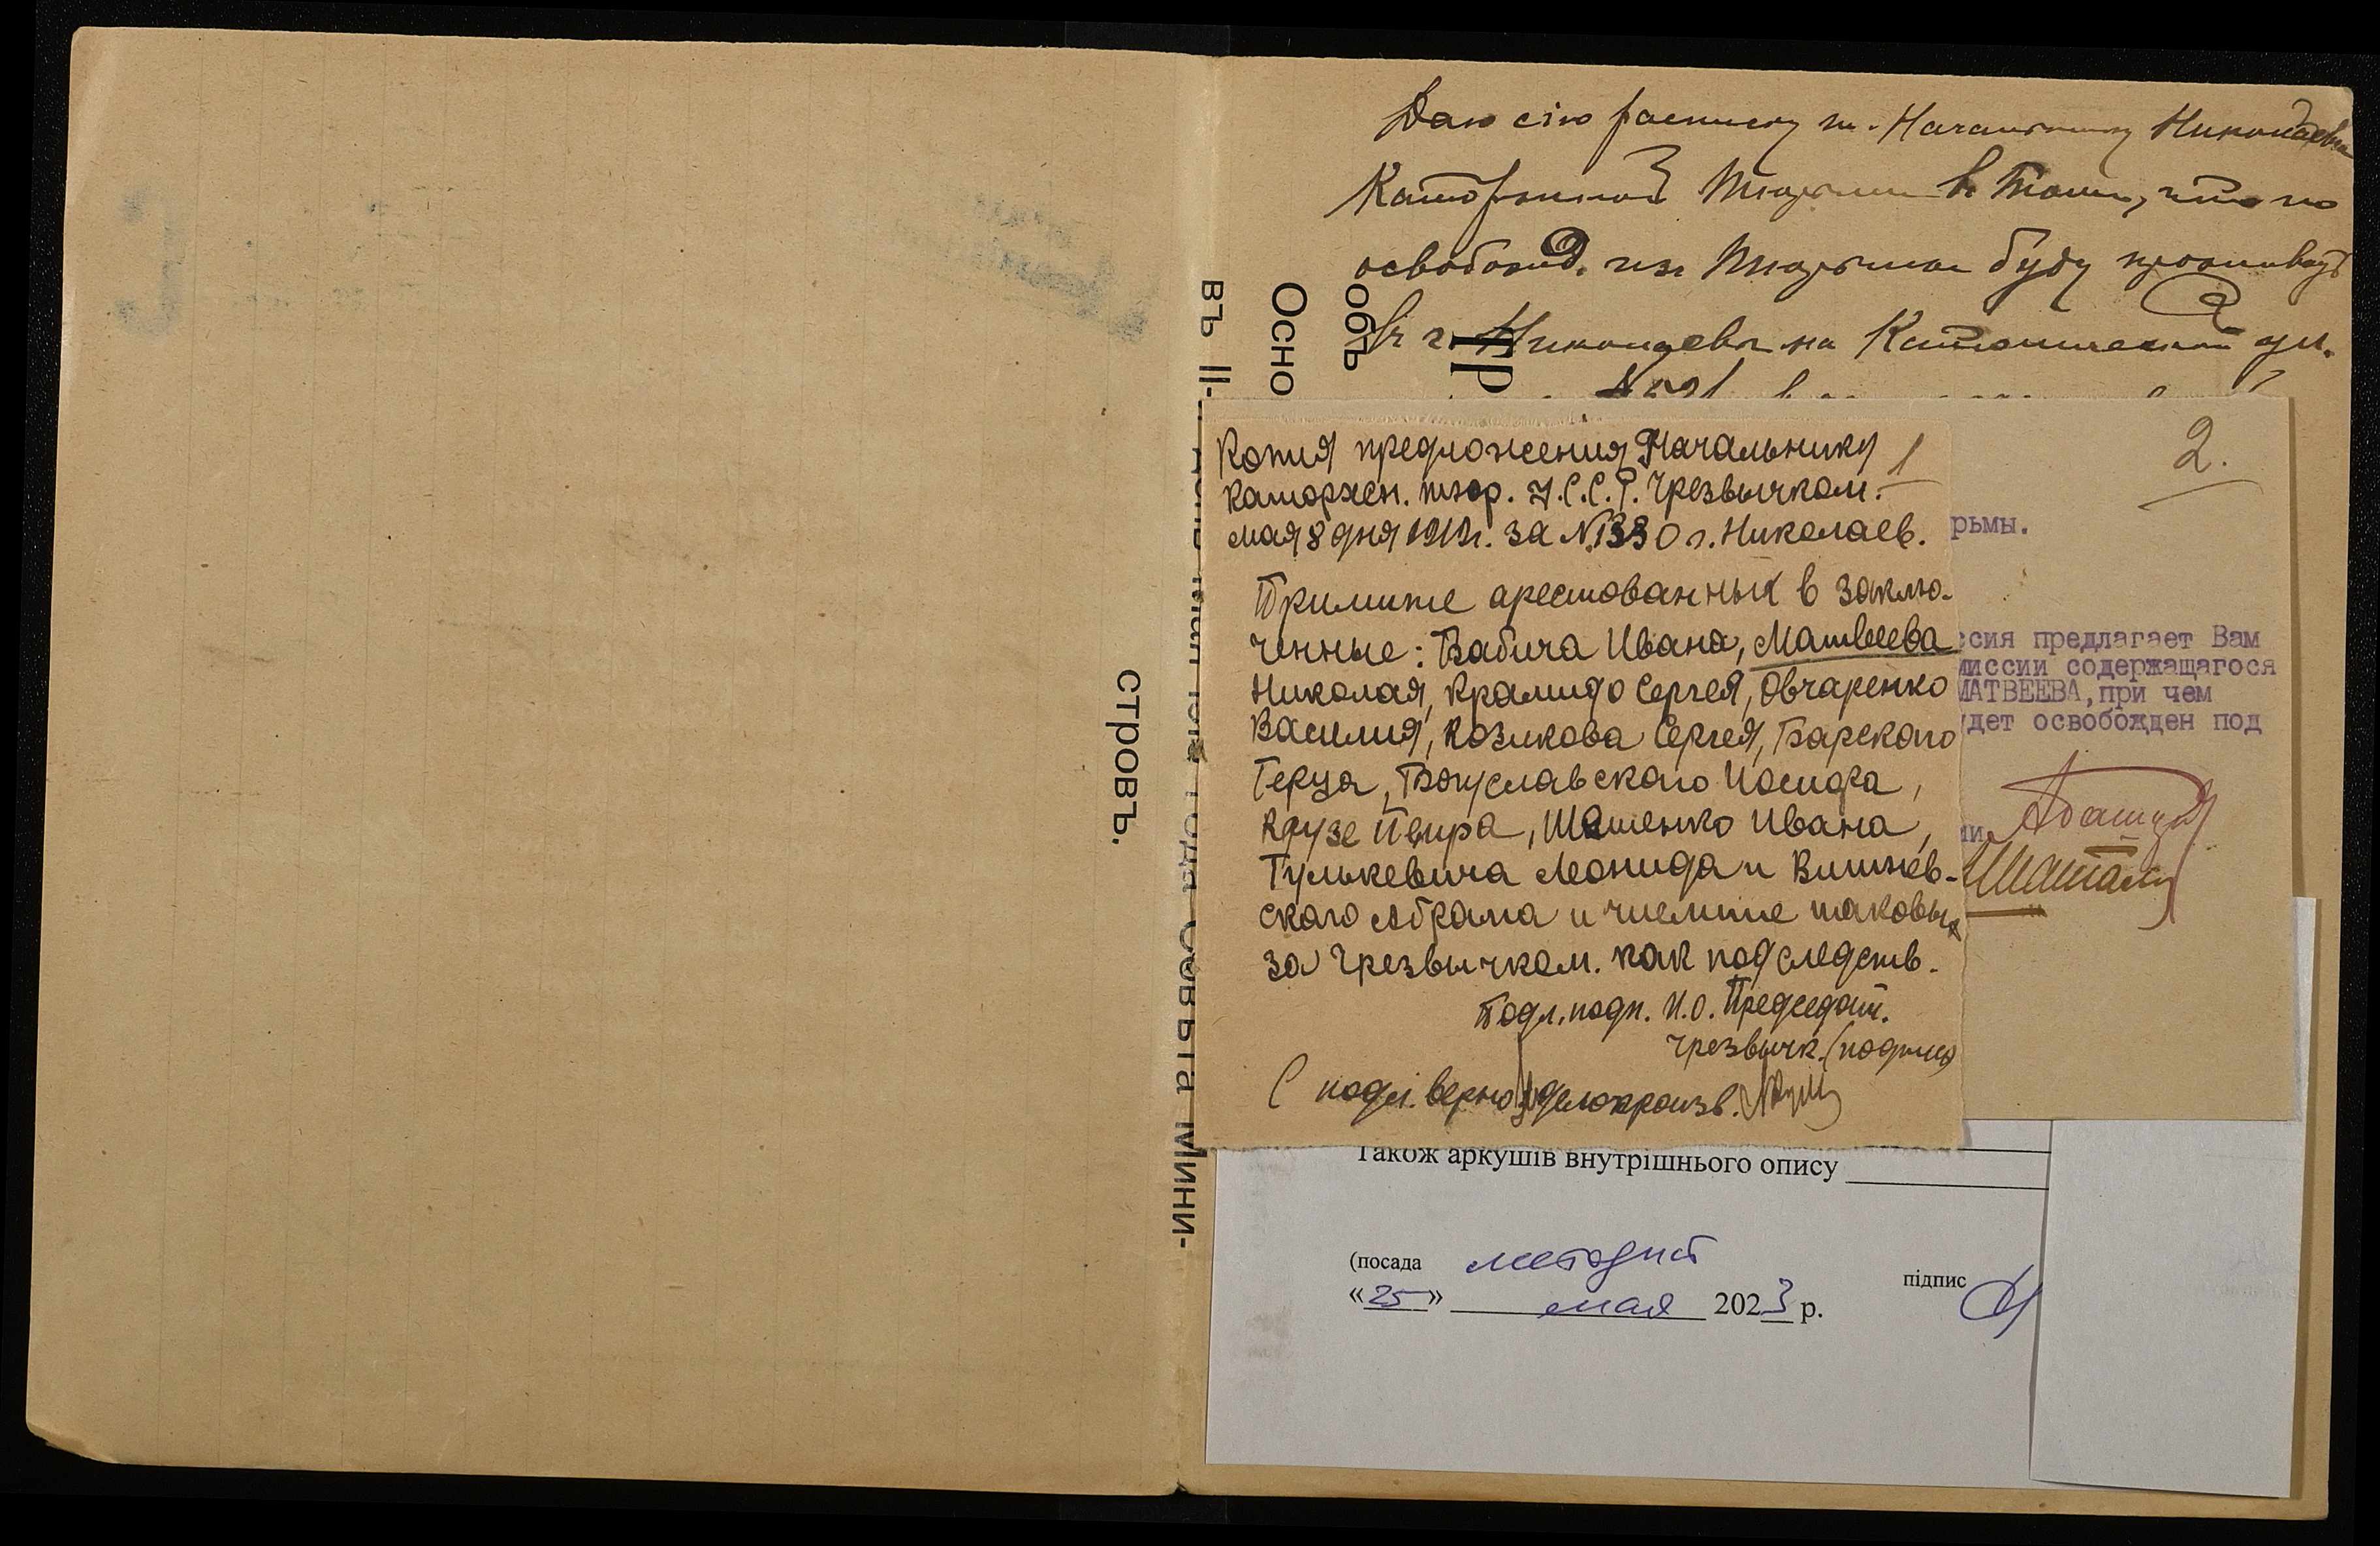 Даю сію расписку т. Начальнику Николаевск
Каторжной Тюрьмы в том, что по
освобожд. из Тюрьмы буду проживать
в г. Николаеве на Католической ул.
объ
Осно
въ II-
стровъ.
2.
Копия предложения Начальнику 1
каторжен. тюр. У.С.С.Р. Чрезвычком.
мая 8 дня 1919г. за №1330 г. Николаев.
Примите арестованных в заклю-
ченные: Бабича Ивана, Матвеева
Николая, Крамидо Сергея, Овчаренко
Василия, Козикова Сергея, Барского
Герца, Богуславского Иосифа,
Крузе Петра, Шашенко Ивана,
Гулькевича Леонида и Вишнев-
ского Абрама и числите таковых
за Чрезвычком. как подследств.
Подл. подп. И.О. Председат.
Чрезвычк. (подпись)
С подл. верно: делопроизв.
рьмы.
ссия предлагает Вам
миссии содержащагося
МАТВЕЕВА, при чем
удет освобожден под
ии
Також аркушів внутрішнього опису
(посада методист
підпис
«25» мая 2023 р.